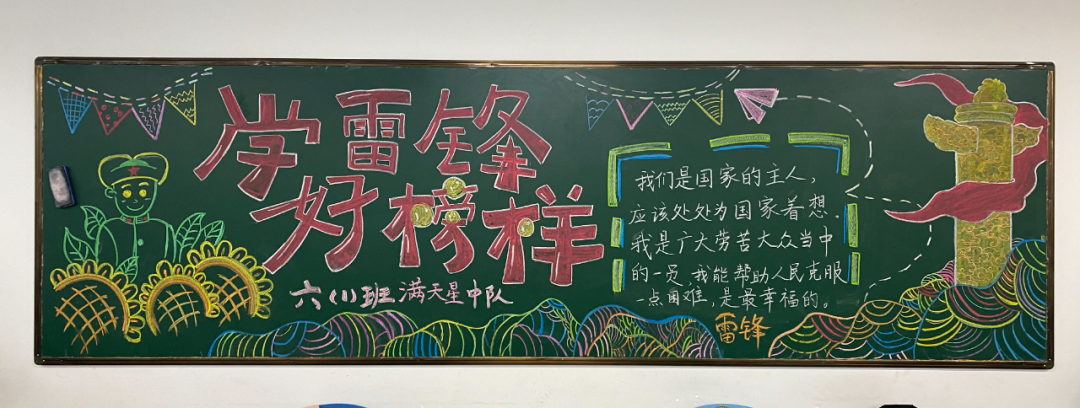 学雷锋
好榜样
六(1)班满天星中队
我们是国家的主人，
应该处处为国家着想.
我是广大劳苦大众当中
的一员，我能帮助人民克服
一点困难，是最幸福的。
雷锋